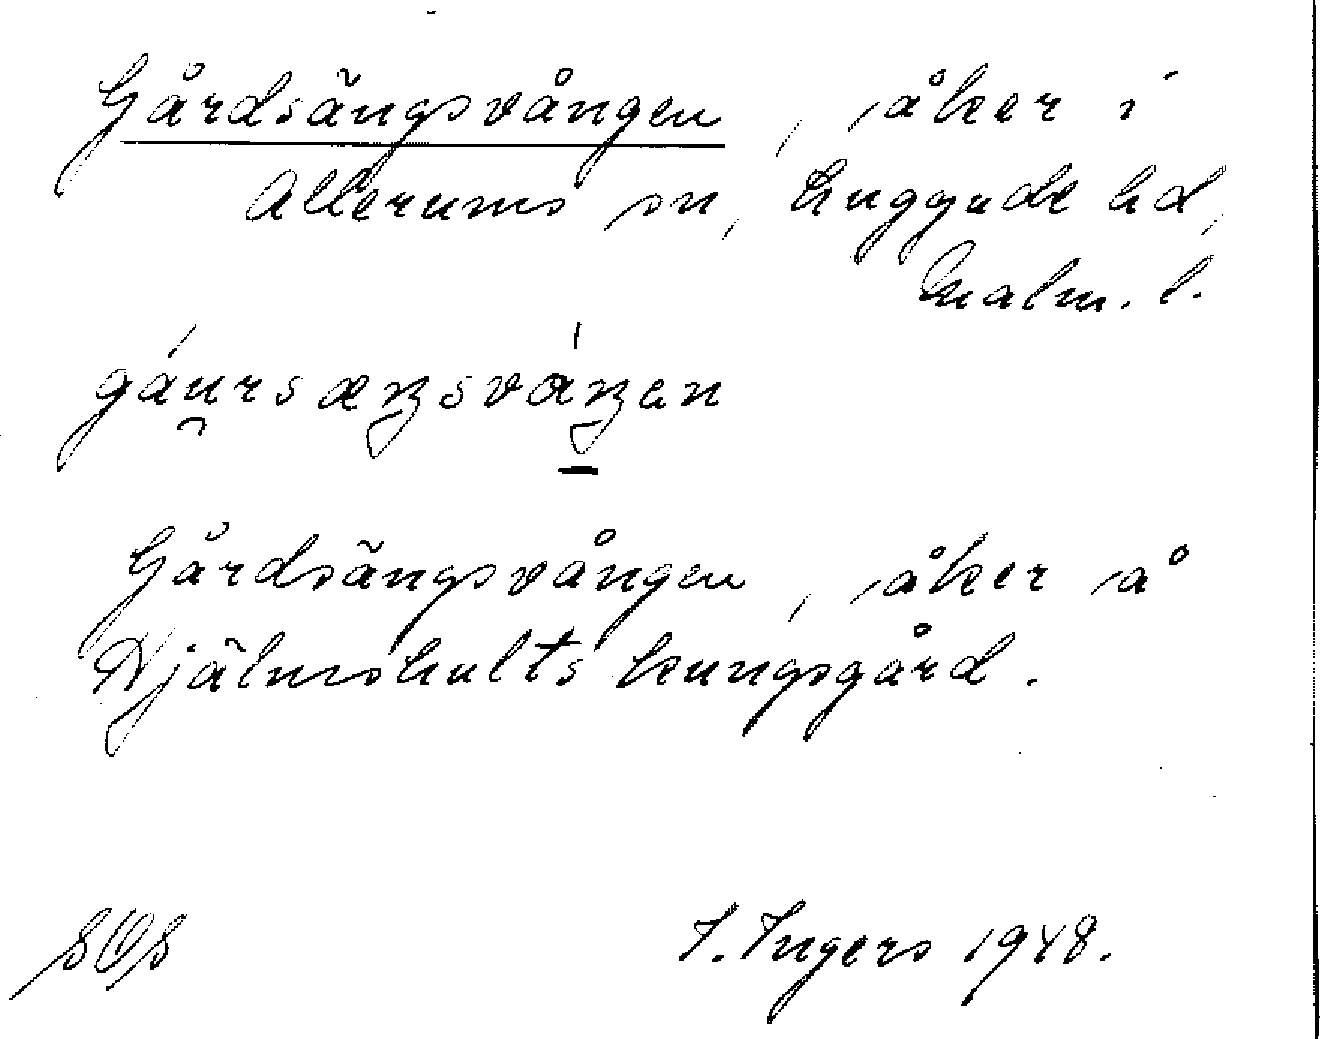 Gårdsängsvången, åker i
Allerums sn, Luggude hd,
Malm. l.
gáu̯rsæŋsváŋen
Gårdsängsvången, åker å
Hjälmshults kungsgård.
SOS I. Ingers 1948.